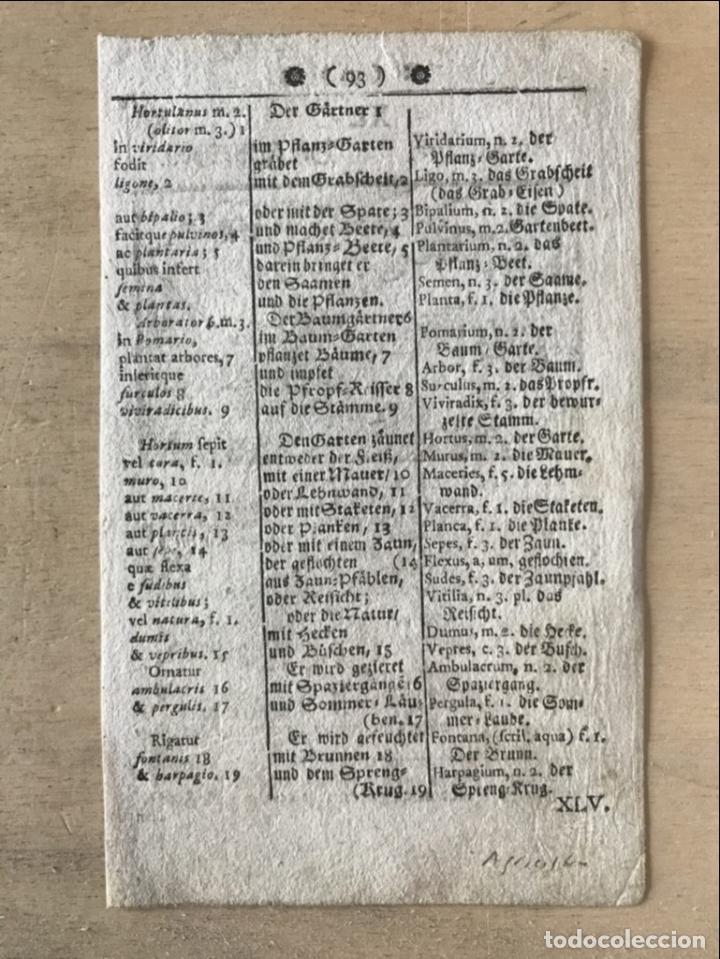 ( 93 )
Hortulanus m. 2.
(olitor m. 3.) 1
in viridario
fodit
ligone, 2
aut bipalio; 3
facitque pulvinos, 4
ac plantaria; 5
quibus infert
semina
& plantas.
Arborator 6. m. 3.
in Pomario,
plantat arbores, 7
inseritque
surculos 8
viviradicibus. 9
Hortum sepit
vel cura, f. 1.
muro, 10
aut macerie, 11
aut vacerra, 12
aut plancis, 13
aut sepe, 14
quæ flexa
e sudibus
& vitilibus;
vel natura, f. 1.
dumis
& vepribus. 15
Ornatur
ambulacris 16
& pergulis. 17
Rigatur
fontanis 18
& harpagio. 19
Der Gärtner 1
im Pflanz-Garten
gräbet
mit dem Grabscheit, 2
oder mit der Spate; 3
und machet Beete, 4
und Pflanz-Beete, 5
darein bringet er
den Saamen
und die Pflanzen.
Der Baumgärtner 6
im Baum-Garten
pflanzet Bäume, 7
und impfet
die Pfropf-Reisser 8
auf die Stämme. 9
Den Garten zäunet
entweder der Fleiß,
mit einer Mauer/ 10
oder Lehnwand, 11
oder mit Staketen, 12
oder Planken, 13
oder mit einem Zaun,
der geflochten (14
aus Zaun-Pfählen,
oder Reisicht;
oder die Natur/
mit Hecken
und Büschen, 15
Er wird gezieret
mit Spaziergänge 16
und Sommer-Läu-
(ben. 17
Er wird gefeuchtet
mit Brunnen 18
und dem Spreng-
(Krug. 19
Viridarium, n. 2. der
Pflanz-Garte.
Ligo, m. 3. das Grabscheit
(das Grab-Eisen)
Bipalium, n. 2. die Spate.
Pulvinus, m. 2. Gartenbeet.
Plantarium, n. 2. das
Pflanz-Beet.
Semen, n. 3. der Saame.
Planta, f. 1. die Pflanze.
Pomarium, n. 2. der
Baum-Garte.
Arbor, f. 3. der Baum.
Surculus, m. 2. das Propfr.
Viviradix, f. 3. der bewur-
zelte Stamm.
Hortus, m. 2. der Garte.
Murus, m. 2. die Mauer.
Maceries, f. 5. die Lehm-
wand.
Vacerra, f. 1. die Staketen.
Planca, f. 1. die Planke.
Sepes, f. 3. der Zaun.
Flexus, a, um, geflochten.
Sudes, f. 3. der Zaunpfahl.
Vitilia, n. 3. pl. das
Reisicht.
Dumus, m. 2. die Hecke.
Vepres, c. 3. der Busch.
Ambulacrum, n. 2. der
Spaziergang.
Pergula, f. 1. die Som-
mer-Laube.
Fontana, (scil. aqua) f. 1.
Der Brunn.
Harpagium, n. 2. der
Spreng-Krug.
XLV.
todocoleccion